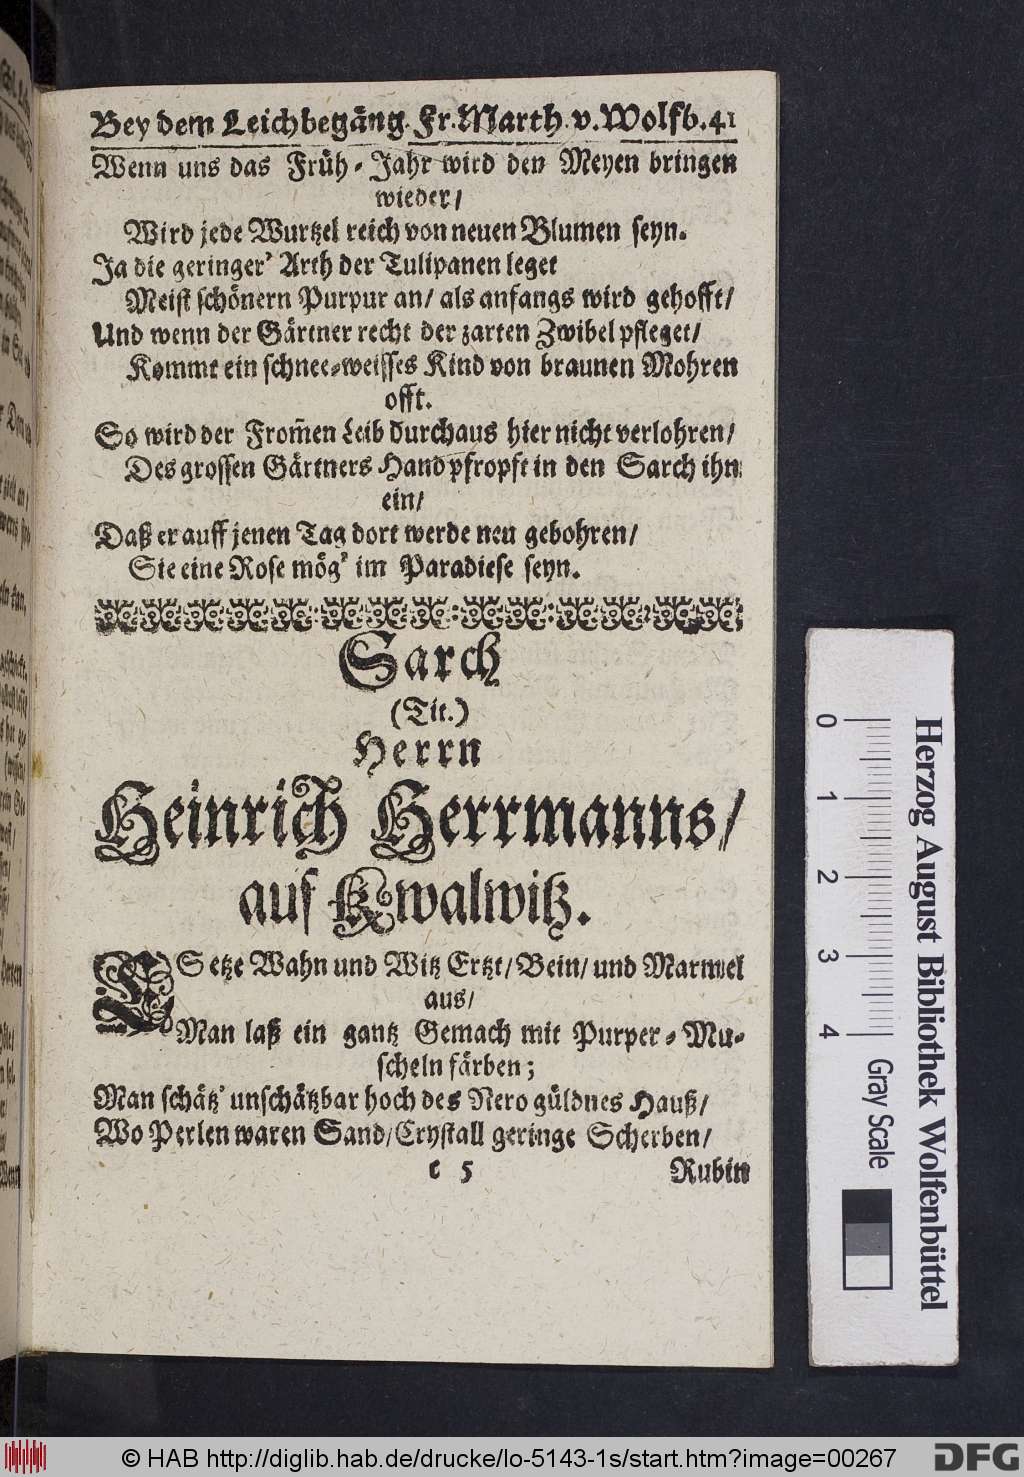 Bey dem Leichbegäng. Fr. Marth. v. Wolfb. 41
Wenn uns das Früh-Jahr wird den Meyen bringen
wieder/
Wird jede Wurtzel reich von neuen Blumen seyn.
Ja die geringer' Arth der Tulipanen leget
Meist schönern Purpur an/ als anfangs wird gehofft/
Und wenn der Gärtner recht der zarten Zwibel pfleget/
Kommt ein schnee-weisses Kind von braunen Mohren
offt.
So wird der From̃en Leib durchaus hier nicht verlohren/
Des grossen Gärtners Hand pfropft in den Sarch ihn
ein/
Daß er auff jenen Tag dort werde neu gebohren/
Sie eine Rose mög' im Paradiese seyn.
Sarch
(Tit.)
Herrn
Heinrich Herrmanns/
auf Kwalwitz.
ESetze Wahn und Witz Ertzt/ Bein/ und Marmel
aus/
Man laß ein gantz Gemach mit Purper-Mu-
scheln färben;
Man schätz' unschätzbar hoch des Nero güldnes Hauß/
Wo Perlen waren Sand/ Crystall geringe Scherben/
c 5 Rubin
0 1 2 3 4
Gray Scale
Herzog August Bibliothek Wolfenbüttel
© HAB http://diglib.hab.de/drucke/lo-5143-1s/start.htm?image=00267
DFG